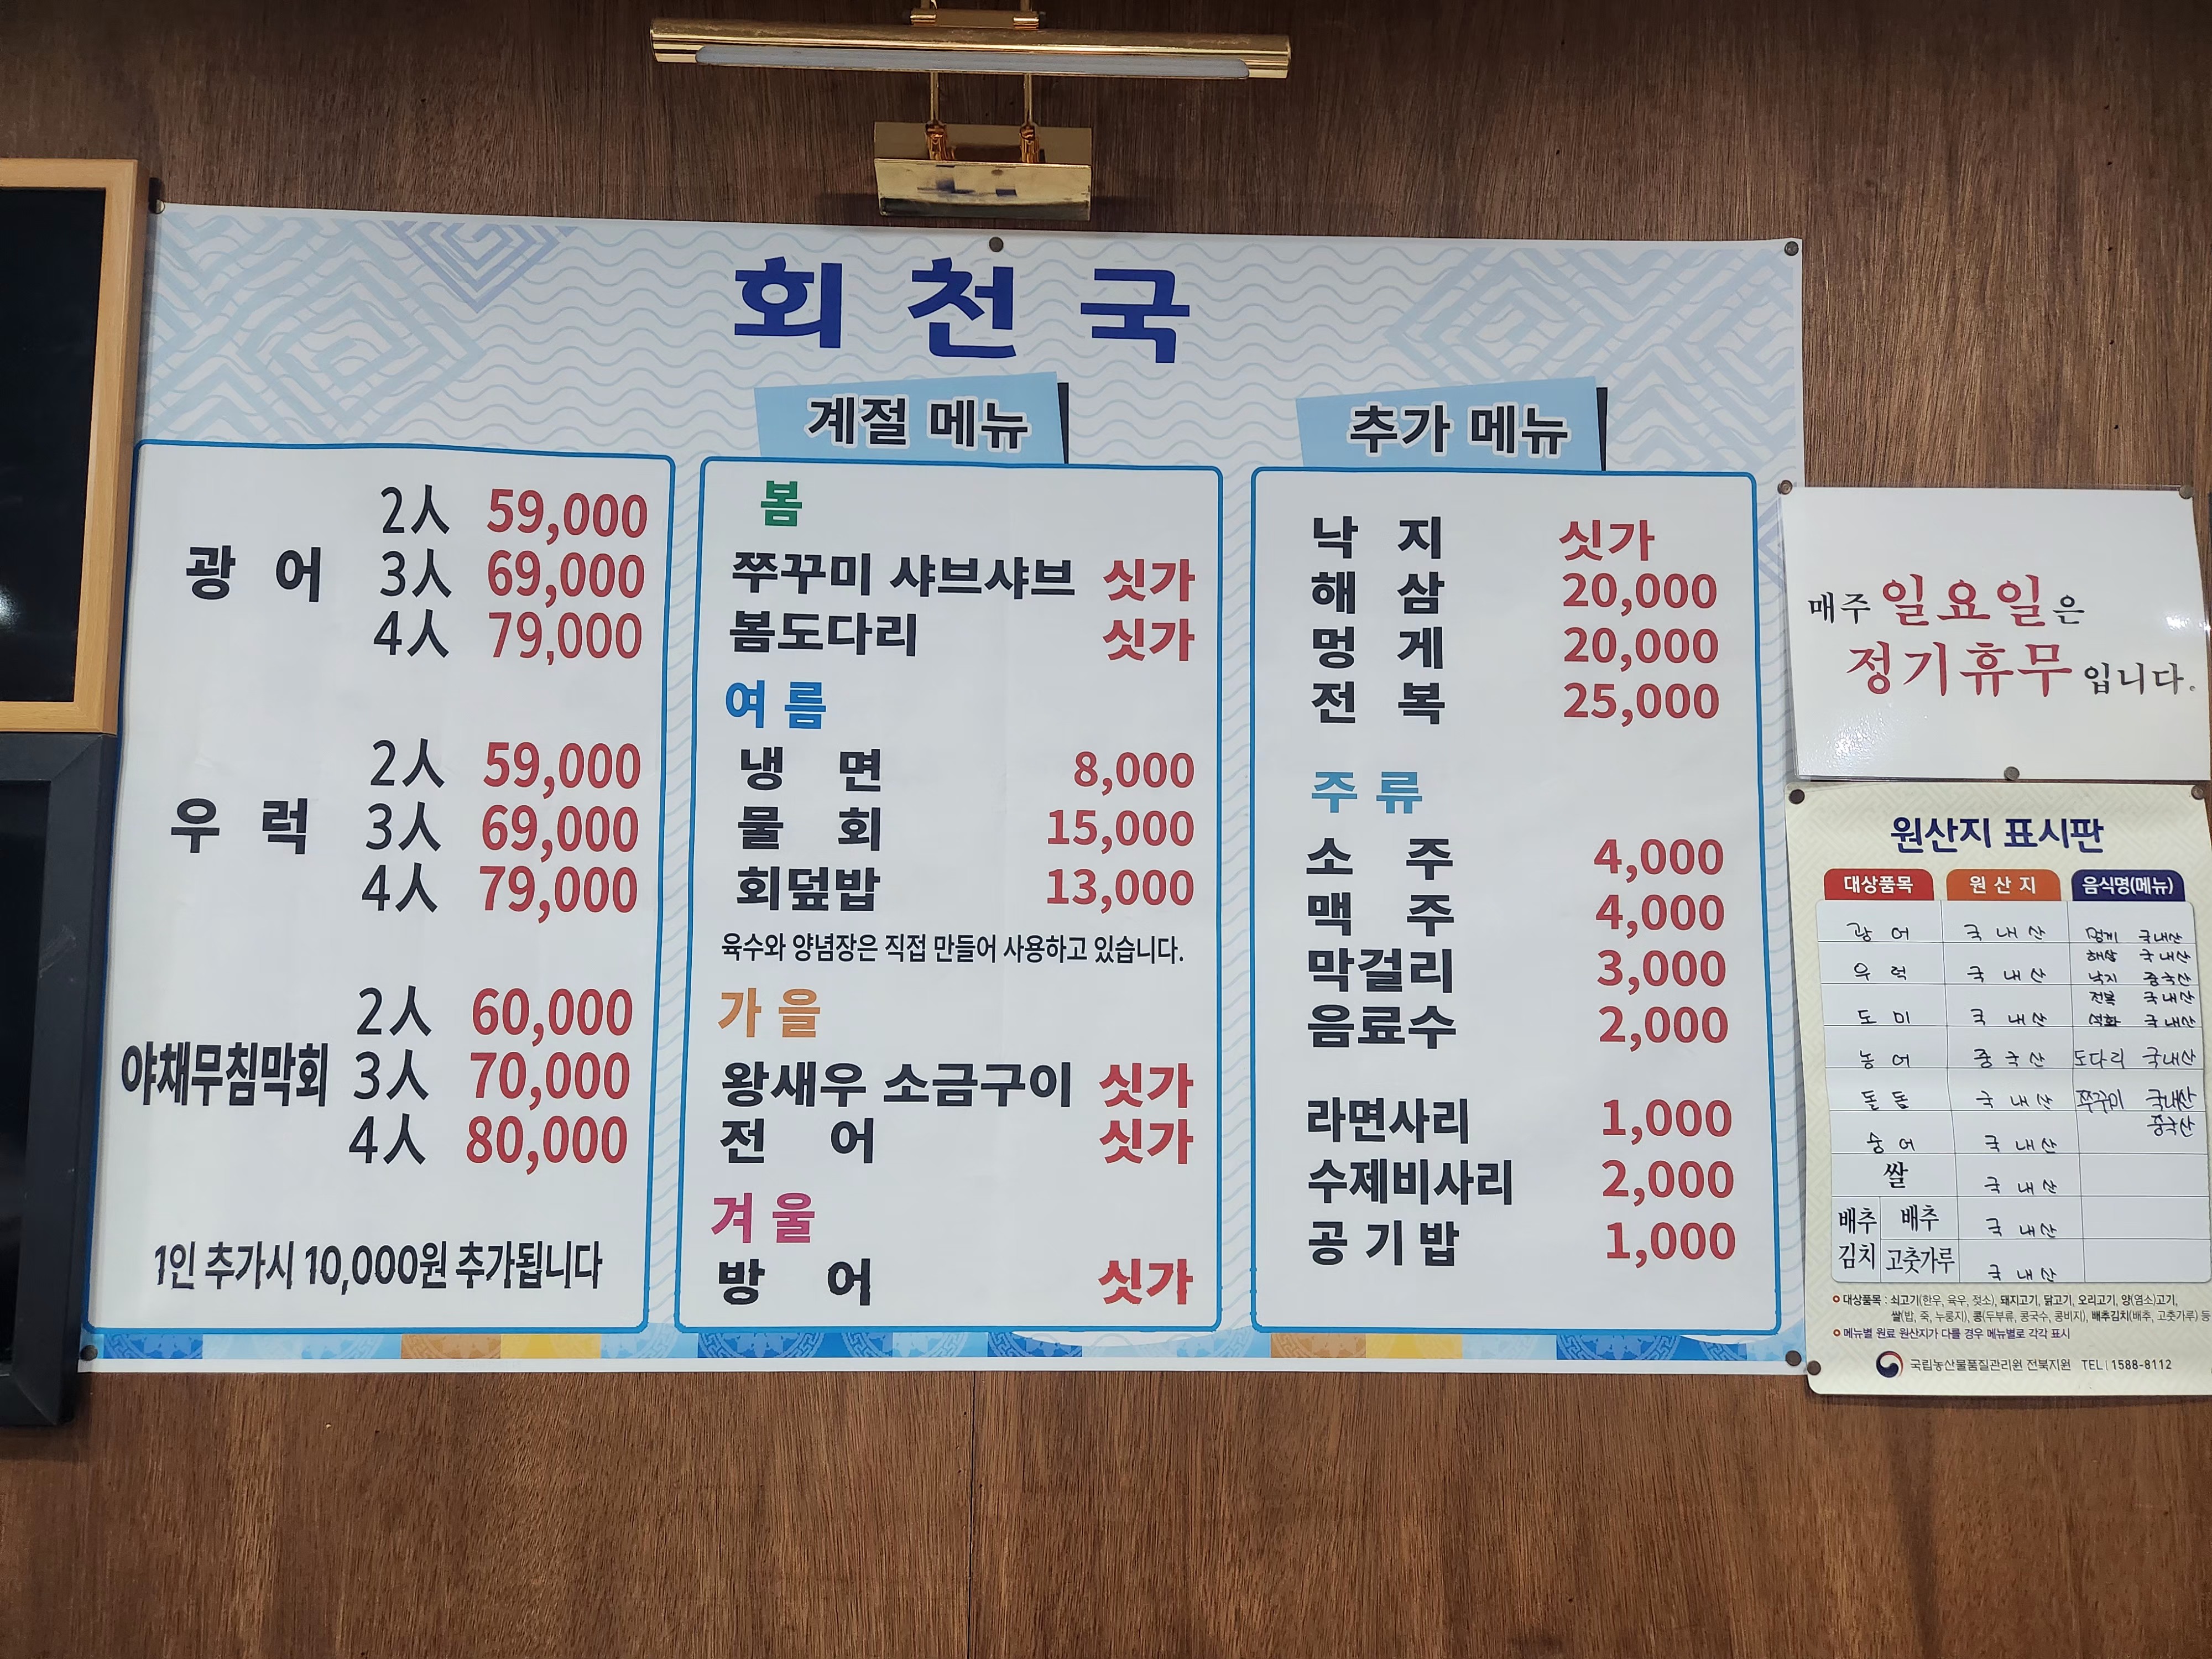 회 천 국
2人 59,000
광 어 3人 69,000
4人 79,000
2人 59,000
우 럭 3人 69,000
4人 79,000
2人 60,000
야채무침막회 3人 70,000
4人 80,000
1인 추가시 10,000원 추가됩니다
계절 메뉴
봄
쭈꾸미 샤브샤브 싯가
봄도다리 싯가
여 름
냉 면 8,000
물 회 15,000
회덮밥 13,000
육수와 양념장은 직접 만들어 사용하고 있습니다.
가 을
왕새우 소금구이 싯가
전 어 싯가
겨 울
방 어 싯가
추가 메뉴
낙 지 싯가
해 삼 20,000
멍 게 20,000
전 복 25,000
주 류
소 주 4,000
맥 주 4,000
막걸리 3,000
음료수 2,000
라면사리 1,000
수제비사리 2,000
공 기 밥 1,000
매주 일요일은
정기휴무입니다.
원산지 표시판
대상품목 원 산 지 음식명(메뉴)
광 어 국 내 산 멍게 국내산
해삼 국내산
우 럭 국 내 산 낙지 중국산
전복 국내산
도 미 국 내 산 석화 국내산
농 어 중 국 산 도다리 국내산
돌 돔 국 내 산 쭈꾸미 국내산
중국산
숭 어 국 내 산
쌀 국 내 산
배추 배추 국 내 산
김치 고춧가루 국 내 산
대상품목 : 쇠고기(한우, 육우, 젖소), 돼지고기, 닭고기, 오리고기, 양(염소)고기,
쌀(밥, 죽, 누룽지), 콩(두부류, 콩국수, 콩비지), 배추김치(배추, 고춧가루) 등
메뉴별 원료 원산지가 다를 경우 메뉴별로 각각 표시
국립농산물품질관리원 전북지원 TEL 1588-8112